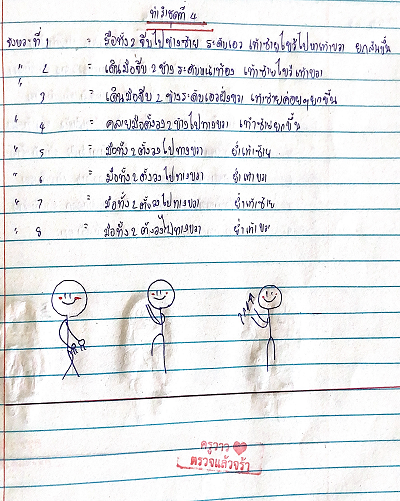 ท่ารำชุดที่ 4
จังหวะที่ 1 = มือทั้ง 2 จีบไปทางซ้าย ระดับเอว เท้าซ้ายไขว้ไปทางเท้าขวา ยกส้นขึ้น
" 2 = เดินมือจีบ 2 ข้างระดับหน้าท้อง เท้าซ้ายไขว้เท้าขวา
" 3 = เดินมือจีบ 2 ข้างระดับเอวฝั่งขวา เท้าซ้ายค่อยๆยกขึ้น
" 4 = คลายมือตั้งวง 2 ข้างไปทางขวา เท้าซ้ายยกขึ้น
" 5 = มือทั้ง 2 ตั้งวงไปทางขวา ย่ำเท้าซ้าย
" 6 = มือทั้ง 2 ตั้งวงไปทางขวา ย่ำเท้าขวา
" 7 = มือทั้ง 2 ตั้งวงไปทางขวา ย่ำเท้าซ้าย
" 8 = มือทั้ง 2 ตั้งวงไปทางขวา ย่ำเท้าขวา
ครูวาว
ตรวจแล้วจร้า